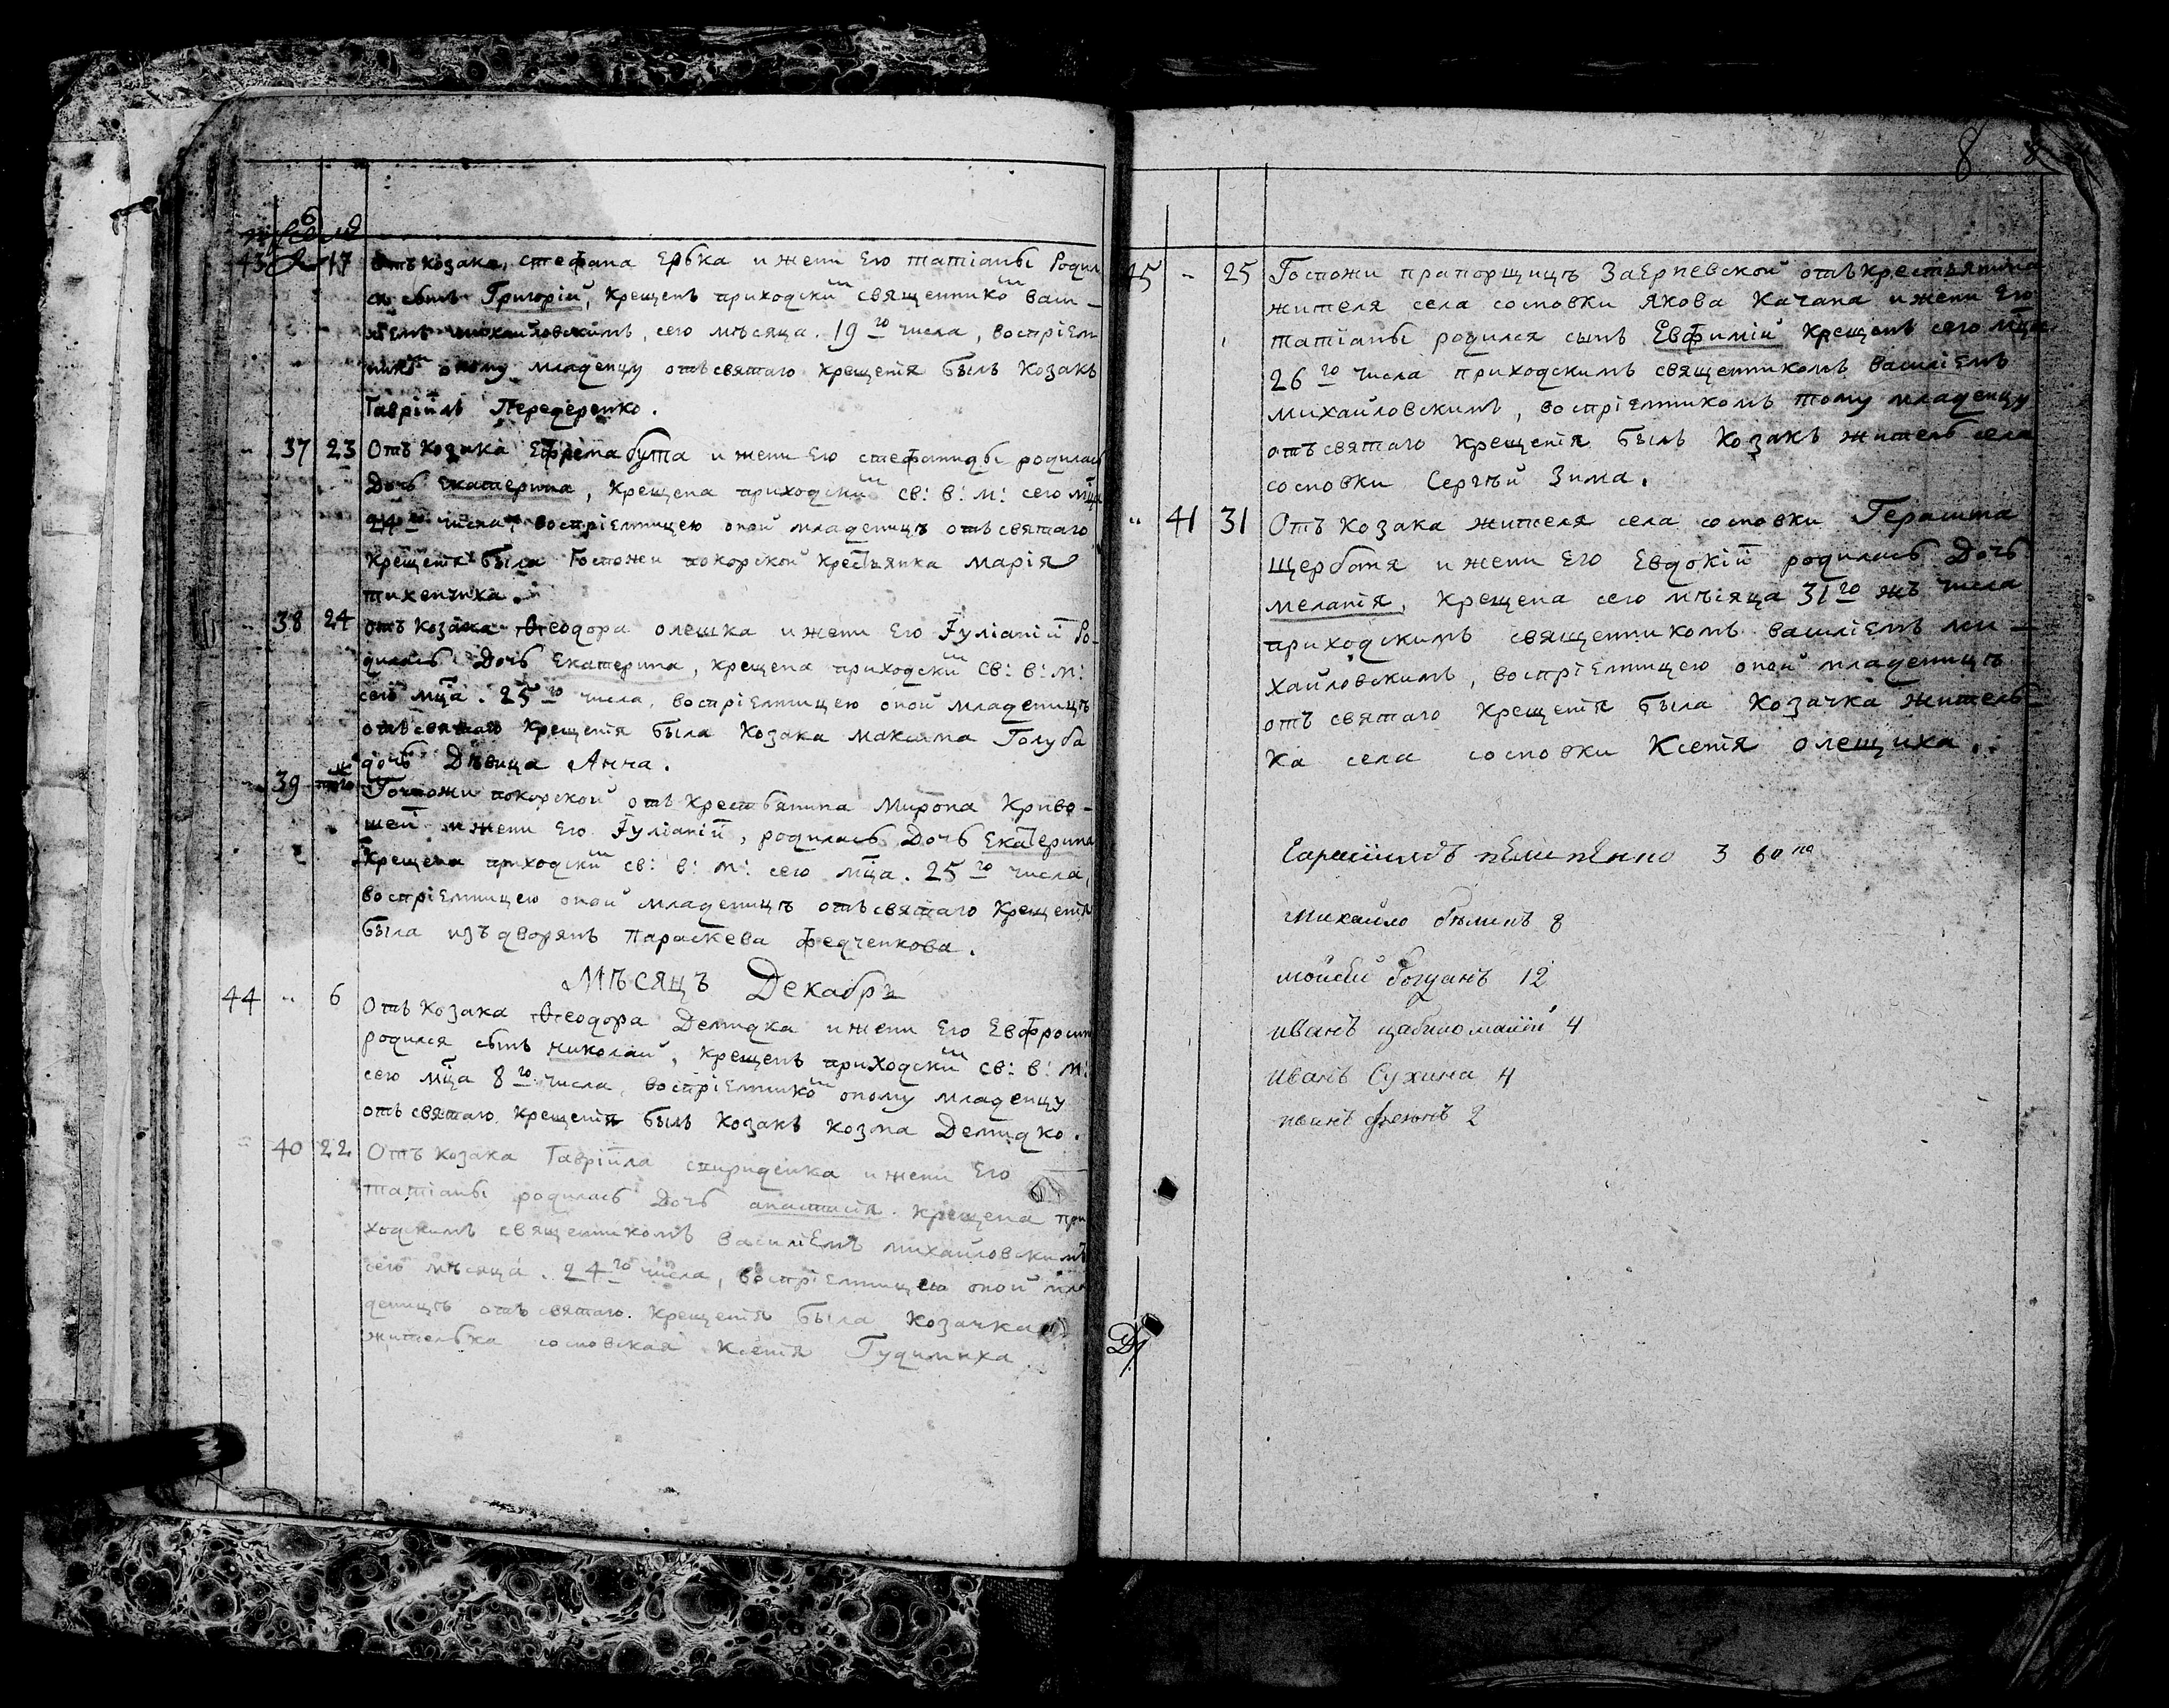 43 17 Отъ козака, стефана Ербка и жени Его татіаны Роди
ся сынъ Григорій, крещенъ приходски священнико васи-
ліемъ михайловскимъ, сего мѣсяца. 19го числа, воспріем
нико оному младенцу отъ святаго крещенія былъ козакъ
Гавріилъ Передеренко.
" 37 23 Отъ козака Ефрема бута и жени Его стефаниды родилась
Дочь Екатерина, крещена приходски св: в: м: сего мца
24го числа, воспріемницею оной младеницѣ отъ святаго
крещенія была Госпожи покорской крестьянка марія
тихенчика.
" 38 24 отъ козака Ѳеодора олешка и жени Его Іуліаніи Ро-
дилась Дочь Екатерина, крещена приходски св: в: м:
сего мца. 25го числа, воспріемницею оной младеницѣ
отъ святаго крещенія была козака максима Голуба
дочь Дѣвица Анна.
" 39 Госпожи покорской отъ крестьянина Мирона Криво-
шеи и жени Его Іуліаніи, родилась Дочь Екатерина
крещена приходски св: в: м: сего мца. 25го числа,
воспріемницею оной младеницѣ отъ святаго крещенія
была изъ дворянъ параскева федченкова.
Мѣсяцъ Декабрь
44 " 6 Отъ козака Ѳеодора Демидка и жени Его Евфросин
родился сынъ николай, крещенъ приходски св: в: м:
сего мца 8го числа, воспріемнико оному младенцу
отъ святаго крещенія былъ козакъ козма Демидко.
" 40 22 Отъ козака Гавріила спириденка и жени Его
татіаны родилась Дочь анастасія. крещена при
ходскимъ священникомъ василіемъ михайловскимъ
сего мѣсяца. 24го числа, воспріемницею оной мла
деницѣ отъ святаго. крещенія была козачка
жителька сосновская ксенія Гудимиха
8
45 - 25 Госпожи прапорщицѣ Заерпевской отъ крестьянина
жителя села сосновки якова качана и жени Его
татіаны родился сынъ Евфимій крещенъ сего мца
26го числа приходскимъ священникомъ василіемъ
михайловскимъ, воспріемникомъ тому младенцу
отъ святаго крещенія былъ козакъ житель села
сосновки Сергѣй Зима.
" 41 31 Отъ козака жителя села сосновки Герасима
щербаня и жени Его Евдокіи родилась Дочь
меланія, крещена сего мѣсяца 31го жъ числа
приходскимъ священникомъ василіемъ ми-
хайловскимъ, воспріемницею оной младеницѣ
отъ святаго крещенія была козачка житель-
ка села сосновки Ксенія олещиха.
3
михайло 8
мойсей богданъ 12
иванъ цабино малій 4
иванъ Сухина 4
иванъ 2